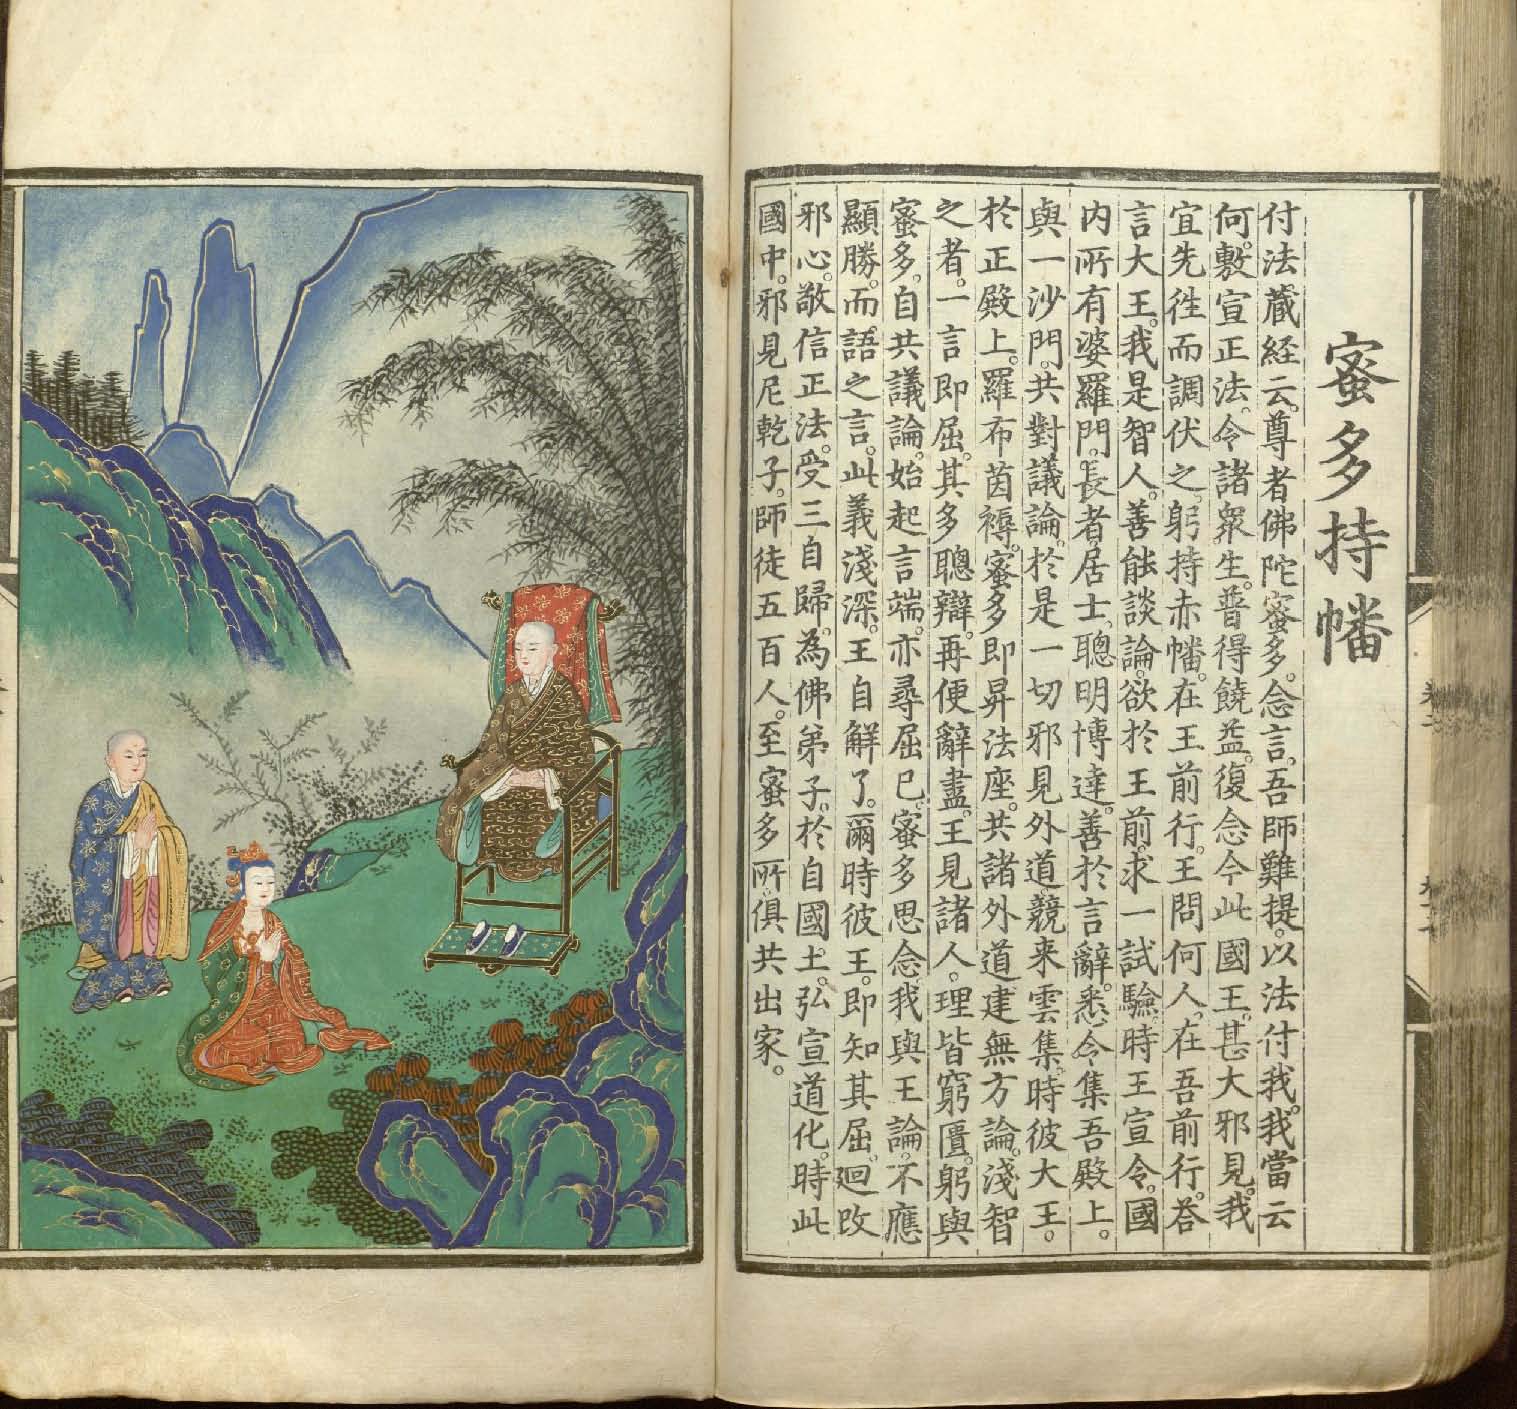 蜜多持幡
付法藏経云。尊者佛陀蜜多。念言。吾師難提。以法付我。我當云
何。敷宣正法。令諸衆生。普得饒益。復念今此國王。甚大邪見。我
宜先徃而調伏之。躬持赤幡。在王前行。王問何人。在吾前行。荅
言大王。我是智人。善能談論。欲於王前。求一試驗。時王宣令。國
内所有婆羅門。長者居士。聰明博達。善於言辭。悉令集吾殿上。
與一沙門。共對議論。於是一切邪見外道。競来雲集。時彼大王。
於正殿上。羅布茵褥。蜜多即昇法座。共諸外道。建無方論。淺智
之者。一言即屈。其多聰辯。再便辭盡。王見諸人。理皆窮匱。躬與
蜜多。自共議論。始起言端。亦尋屈已。蜜多思念。我與王論。不應
顯勝。而語之言。此義淺深。王自解了。爾時彼王。即知其屈。迴改
邪心。敬信正法。受三自歸。為佛弟子。於自國土。弘宣道化。時此
國中。邪見尼乾子。師徒五百人。至蜜多所。俱共出家。